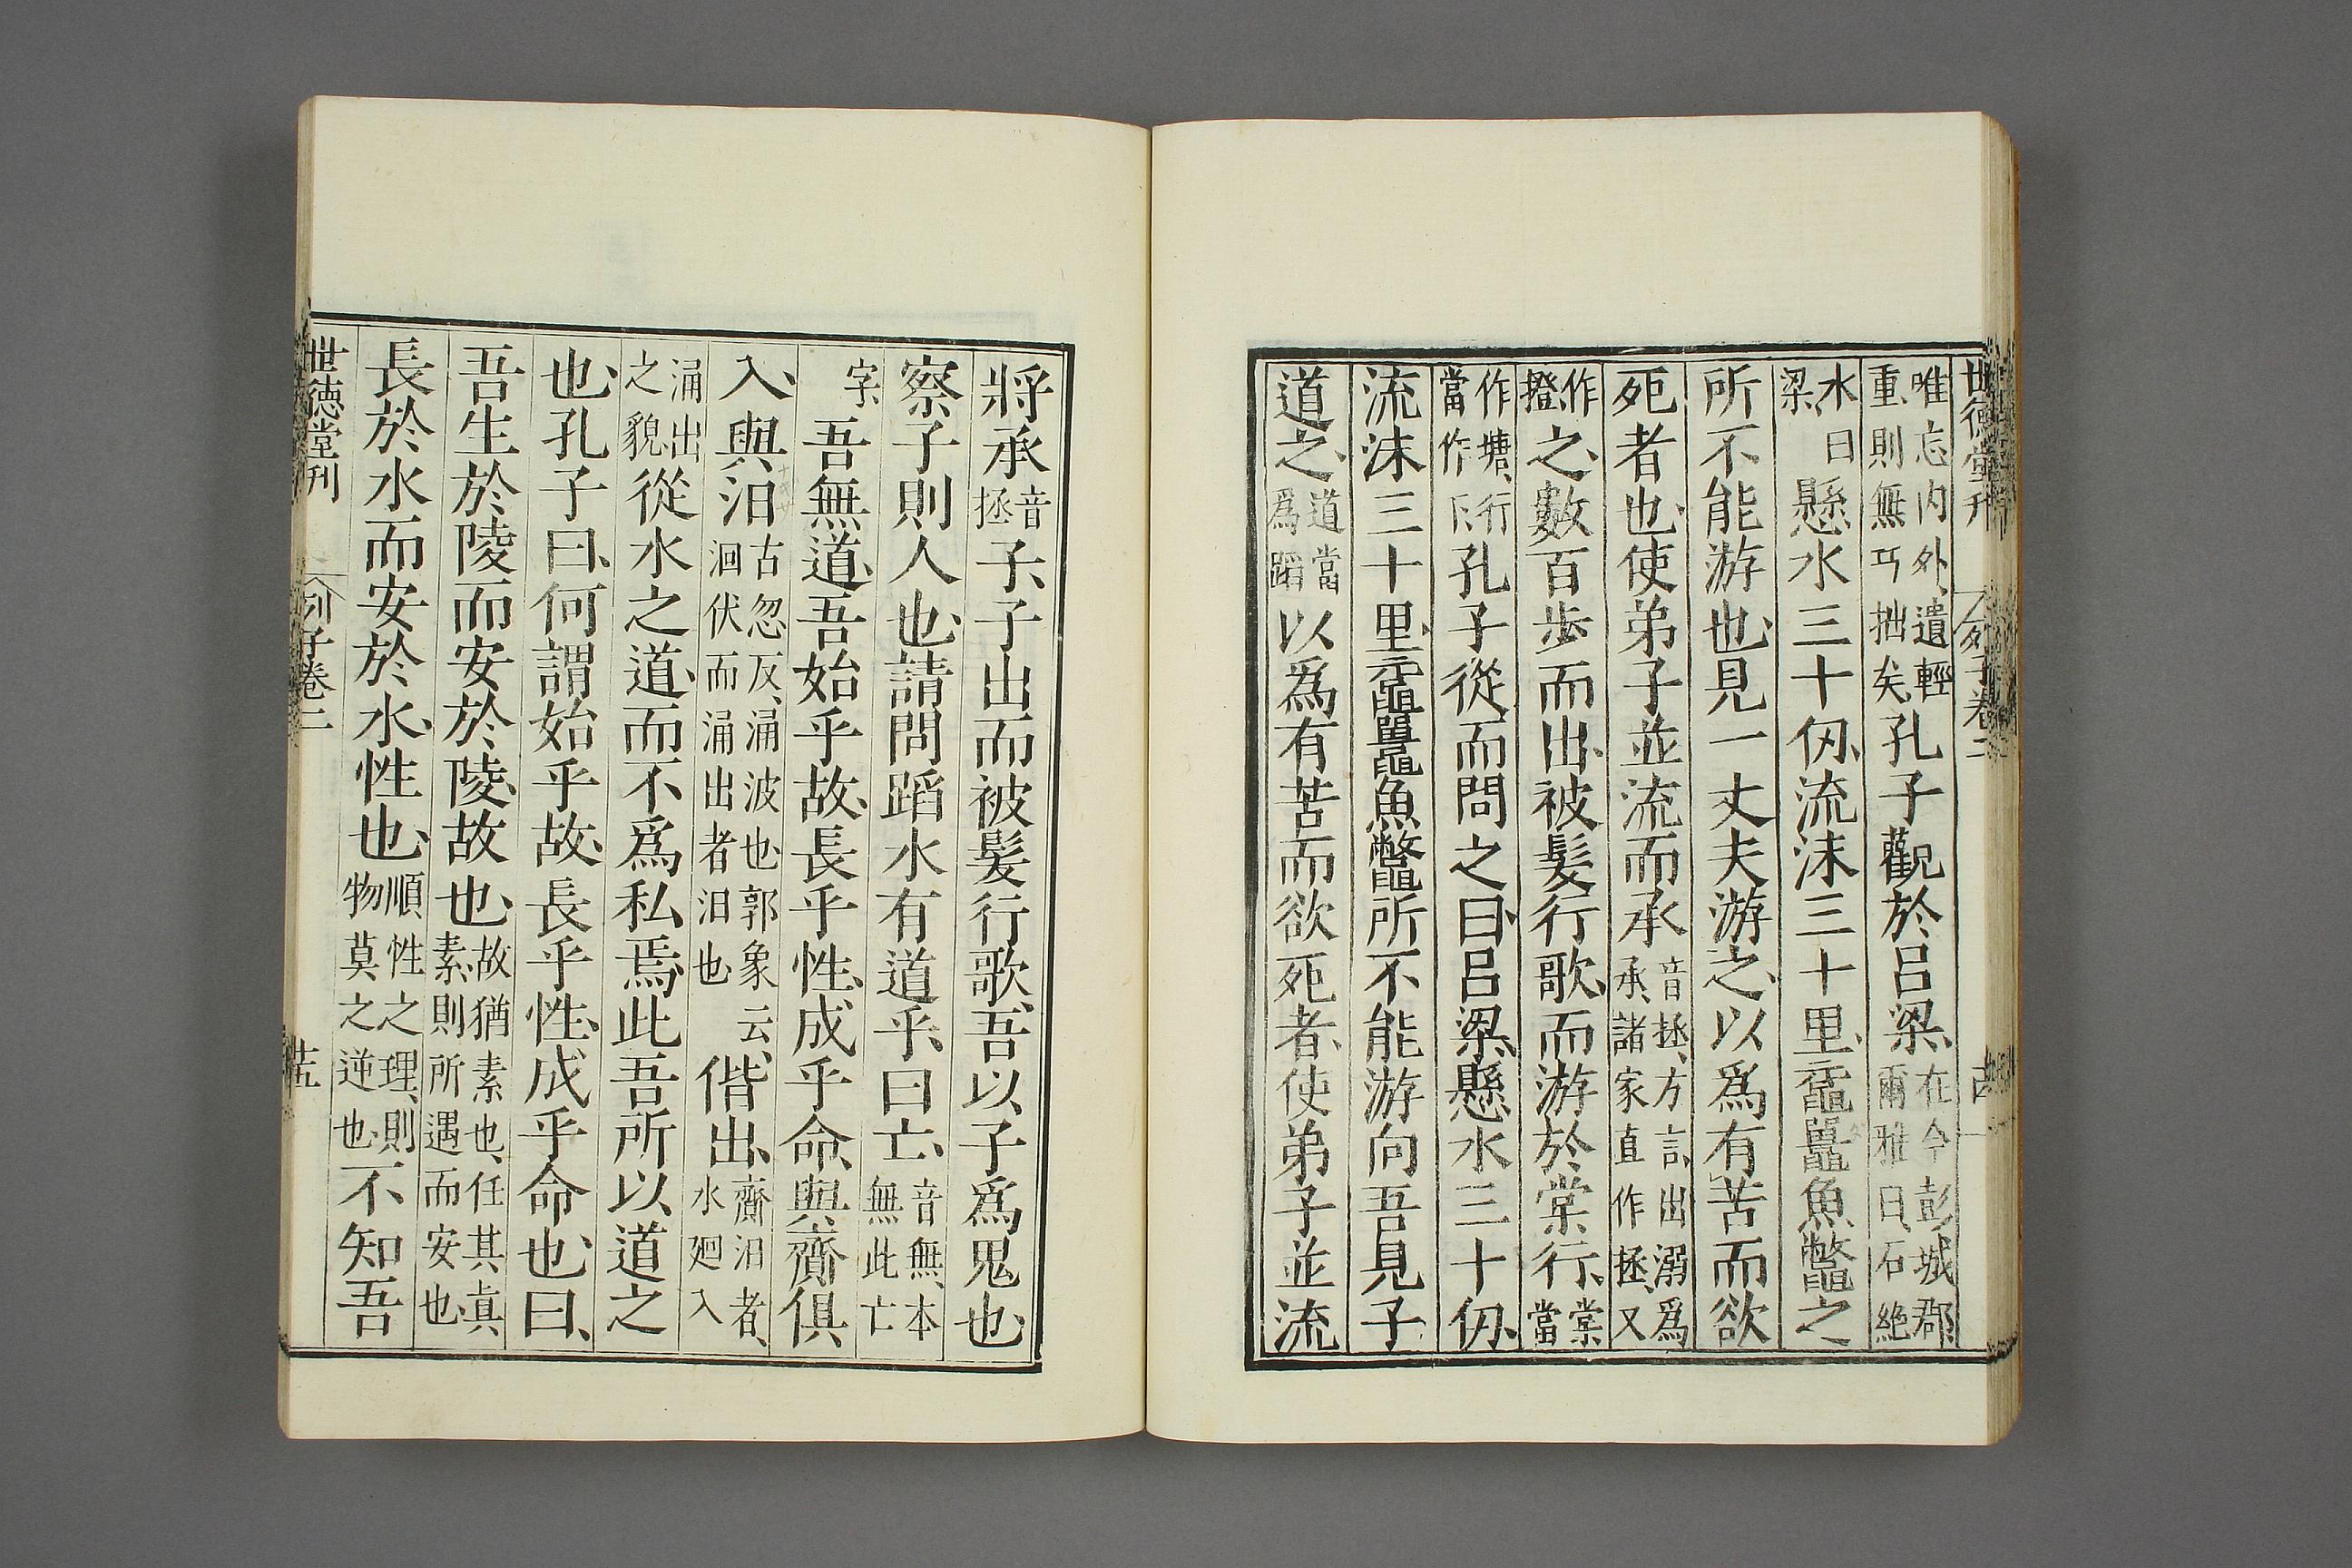 世德堂刊 列子卷二 十四
唯忘内外、遺輕重、則無巧拙矣、孔子觀於呂梁、在今彭城郡、爾雅曰、石絶
水曰梁、懸水三十仞、流沫三十里、黿鼉魚鼈之
所不能游也、見一丈夫游之、以爲有苦而欲
死者也、使弟子並流而承音拯、方言、出溺爲承、諸家直作拯、又
作撜、之、數百步而出、被髮行歌、而游於棠行、棠當
作塘、行當作下、孔子從而問之曰、呂梁、懸水三十仞、
流沫三十里、黿鼉魚鼈所不能游、向吾見子
道之、道當爲蹈以爲有苦而欲死者、使弟子並流
將承音拯子、子出而被髮行歌、吾以子爲鬼也、
察子則人也、請問蹈水有道乎、曰亡、音無、本無此亡
字、吾無道、吾始乎故、長乎性、成乎命、與齎俱
入、與汨古忽反、涌波也、郭象云、洄伏而涌出者汨也、偕出、齎汨者、水廻入
涌出之貌、從水之道、而不爲私焉、此吾所以道之
也、孔子曰、何謂始乎故、長乎性、成乎命也、曰、
吾生於陵而安於陵、故也、故猶素也、任其真素、則所遇而安也、
長於水而安於水、性也、順性之理、則物莫之逆也、不知吾
世德堂刊 列子卷二 十五